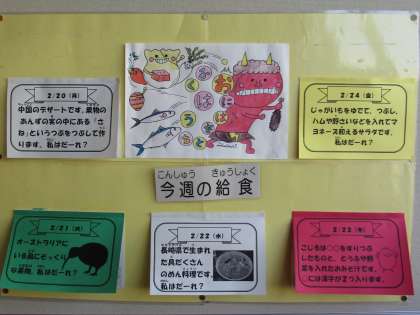 2/20（月）
中国のデザートです。果物の
あんずの実の中にある「さ
ね」というつぶをつぶして作
ります。私はだーれ？
おにはそと
ふくはうち
2/24（金）
じゃがいもをゆでて、つぶし、
ハムや野さいなどを入れてマ
ヨネーズ和えるサラダです。
私はだーれ？
こんしゅう きゅうしょく
今週の給食
2/21（火）
オーストラリアに
いる鳥にそっくり
な果物。私はだーれ？
2/22（水）
長崎県で生まれ
た具だくさん
のめん料理です。
私はだーれ？
2/23（木）
こじるは〇〇をすりつぶ
したものと、とうふや野
菜を入れたおみそ汁です。
〇には漢字が2つ入ります。